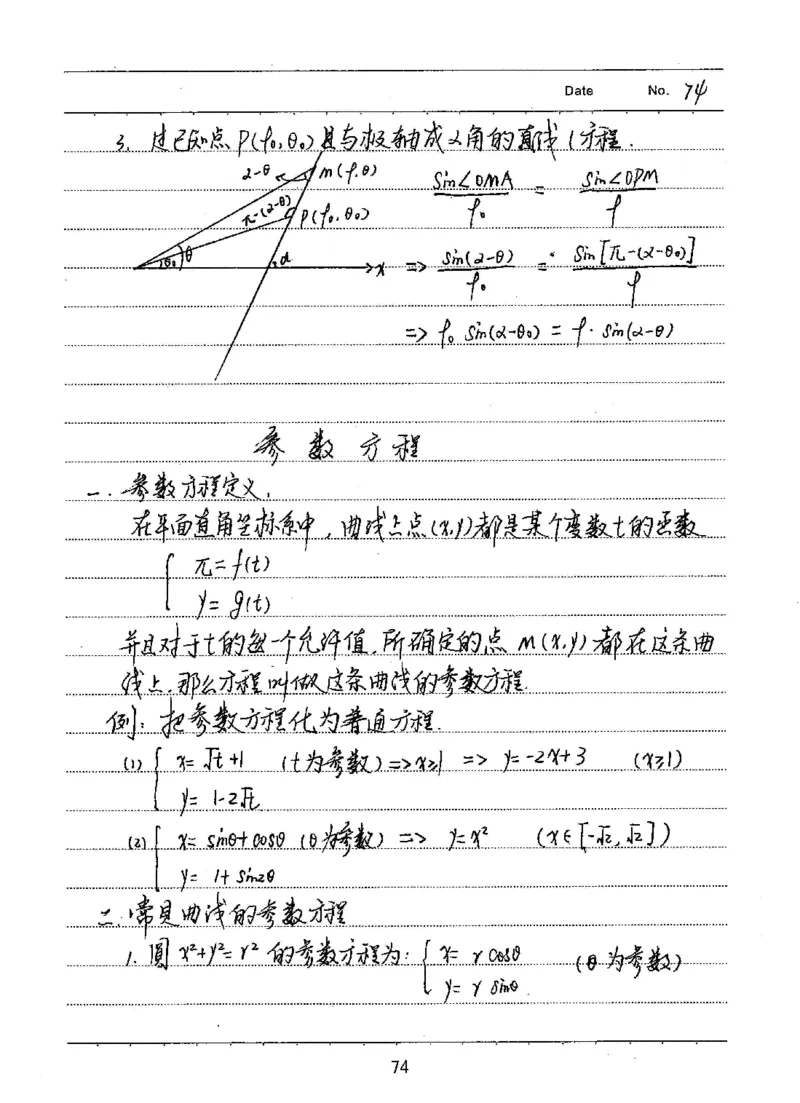 Date No. 74
3. 过已知点 P(ρ₀,θ₀) 且与极轴成α角的直线l方程.
α-θ M(ρ,θ)
π-(α-θ) P(ρ₀,θ₀)
θ₀ θ α x
sin∠OMA/ρ₀ = sin∠OPM/ρ
=> sin(α-θ)/ρ₀ = sin[π-(α-θ₀)]/ρ
=> ρ₀ sin(α-θ₀) = ρ· sin(α-θ)
参数方程
一. 参数方程定义.
在平面直角坐标系中, 曲线上点(x,y)都是某个变数t的函数
{ x = f(t)
y = g(t)
并且对于t的每一个允许值, 所确定的点 M(x,y) 都在这条曲
线上, 那么方程叫做这条曲线的参数方程.
例: 把参数方程化为普通方程.
(1) { x= √t +1 (t为参数) => x≥1 => y= -2x+3 (x≥1)
y= 1-2√t
(2) { x= sinθ+cosθ (θ为参数) => y= x² (x∈[-√2, √2])
y= 1+ sin2θ
二. 常見曲线的参数方程
1. 圓 x²+y²= r² 的参数方程为: { x= r cosθ (θ 为参数)
y= r sinθ.
74